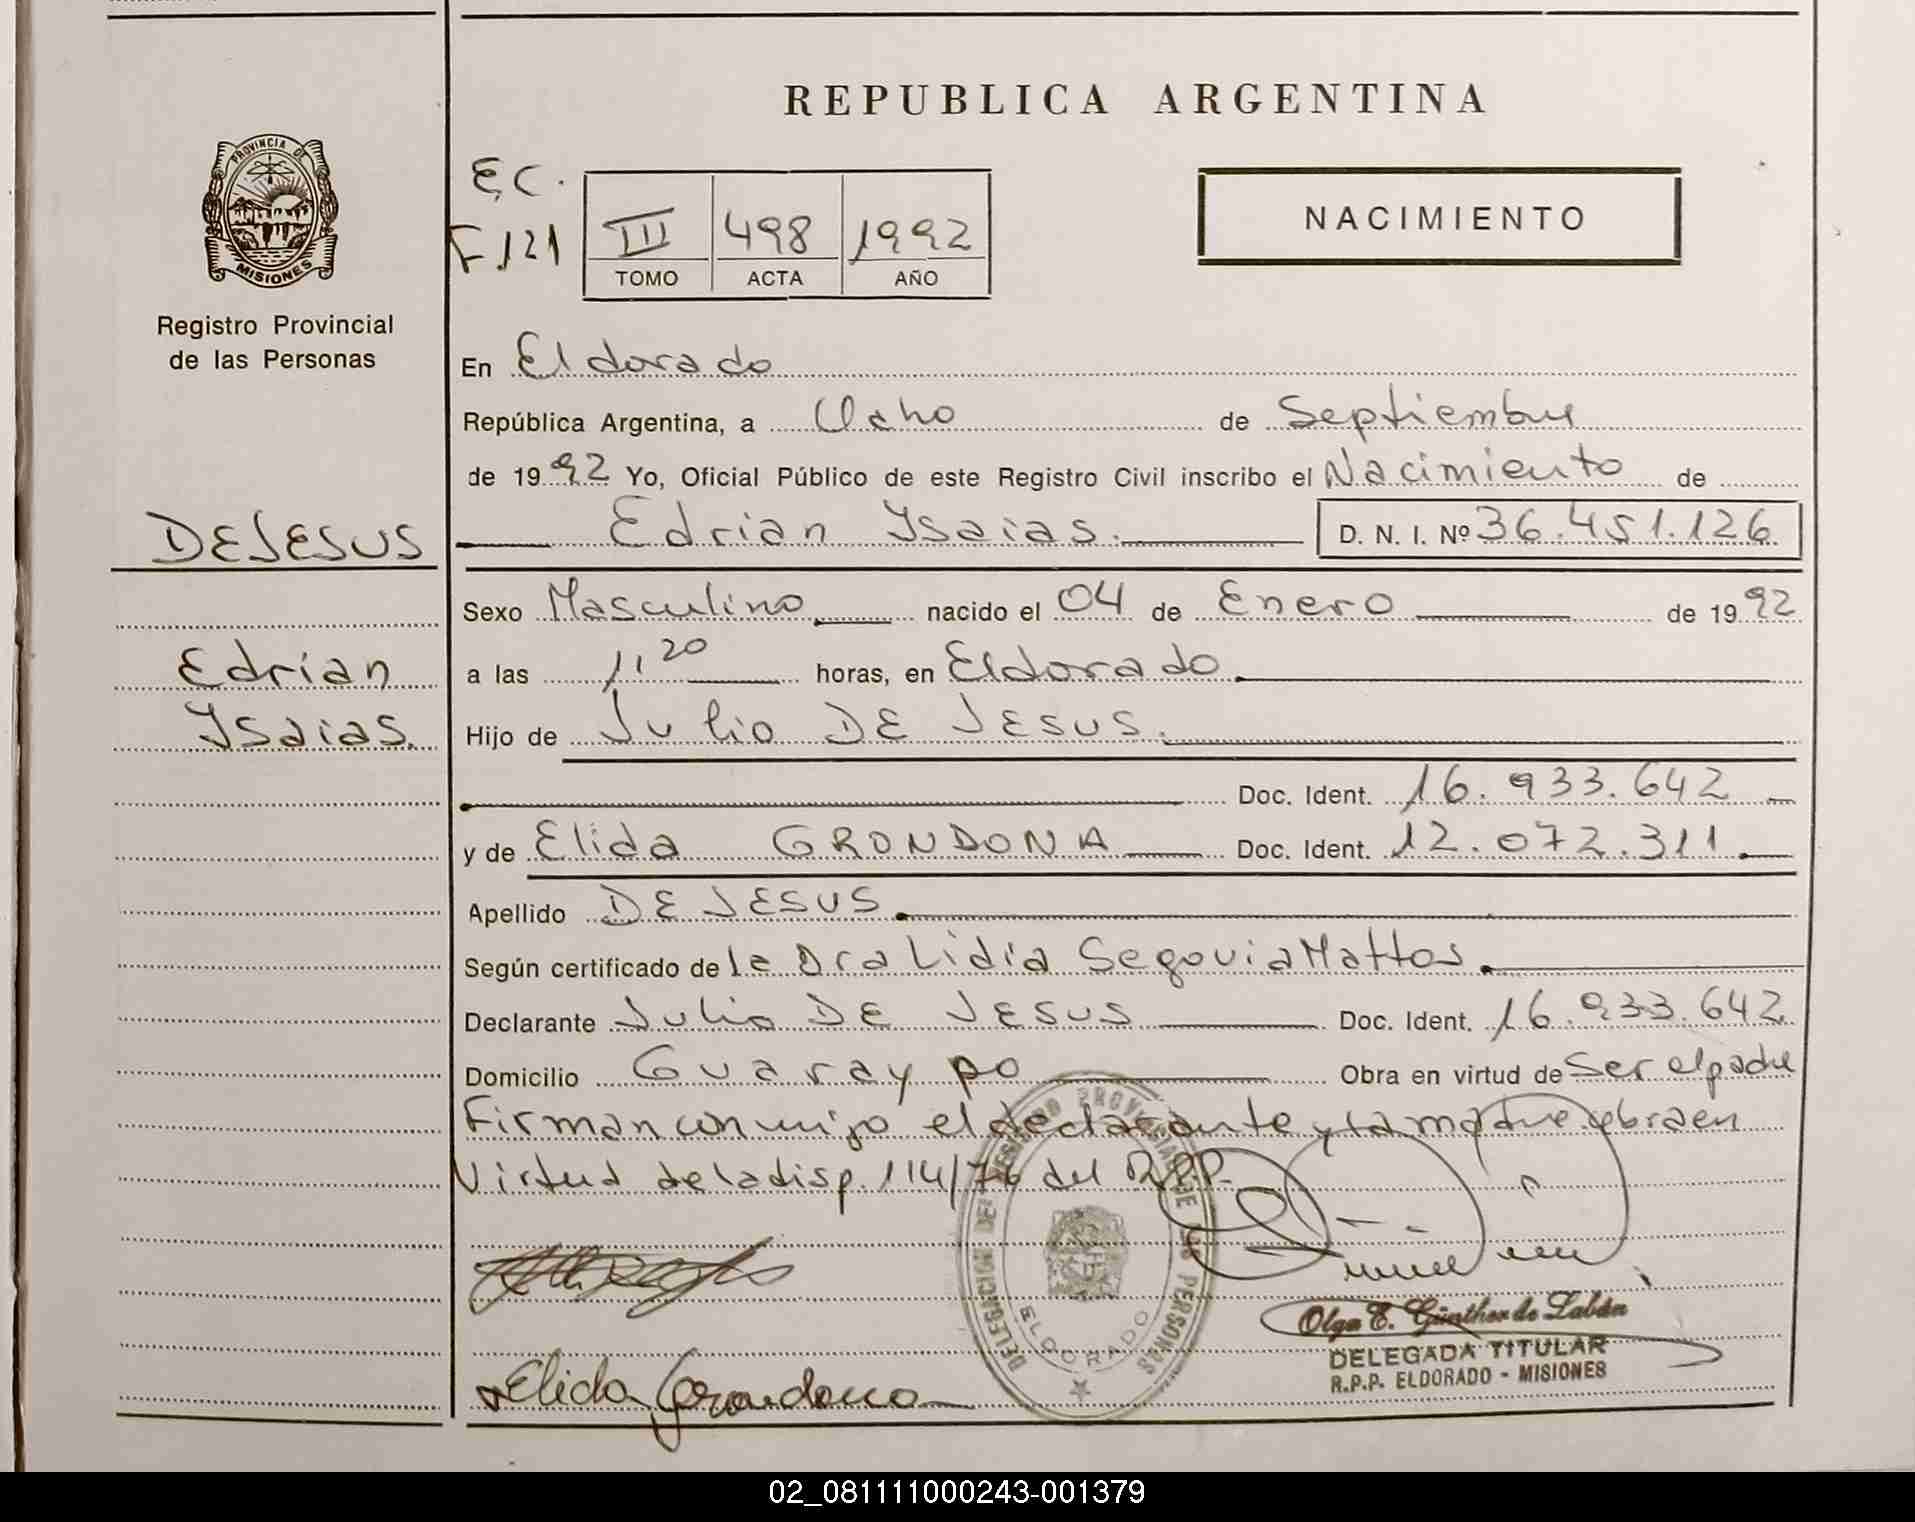 REPUBLICA ARGENTINA
PROVINCIA DE
MISIONES
Registro Provincial
de las Personas
E.C.
F.121
III 498 1992
TOMO ACTA AÑO
NACIMIENTO
En Eldorado
República Argentina, a Ocho de Septiembre
de 1992 Yo, Oficial Público de este Registro Civil inscribo el Nacimiento de
Edrian Ysaias. D. N. I. Nº 36.451.126
DE JESUS
Edrian
Ysaias.
Sexo Masculino nacido el 04 de Enero de 1992
a las 1,20 horas, en Eldorado
Hijo de Julio DE JESUS.
Doc. Ident. 16.933.642
y de Elida GRONDONA Doc. Ident. 12.072.311
Apellido DE JESUS
Según certificado de la Dra Lidia Segovia Mattos.
Declarante Julio DE JESUS Doc. Ident. 16.933.642
Domicilio Guaraypo Obra en virtud de Ser el padre
Firman conmigo el declarante y la madre y obra en
Virtud de la disp. 114/76 del R.P.P.
DELEGACION DEL REGISTRO PROVINCIAL DE LAS PERSONAS
ELDORADO
Olga E. Günther de Labán
DELEGADA TITULAR
R.P.P. ELDORADO - MISIONES
Elida Grondona
02_081111000243-001379